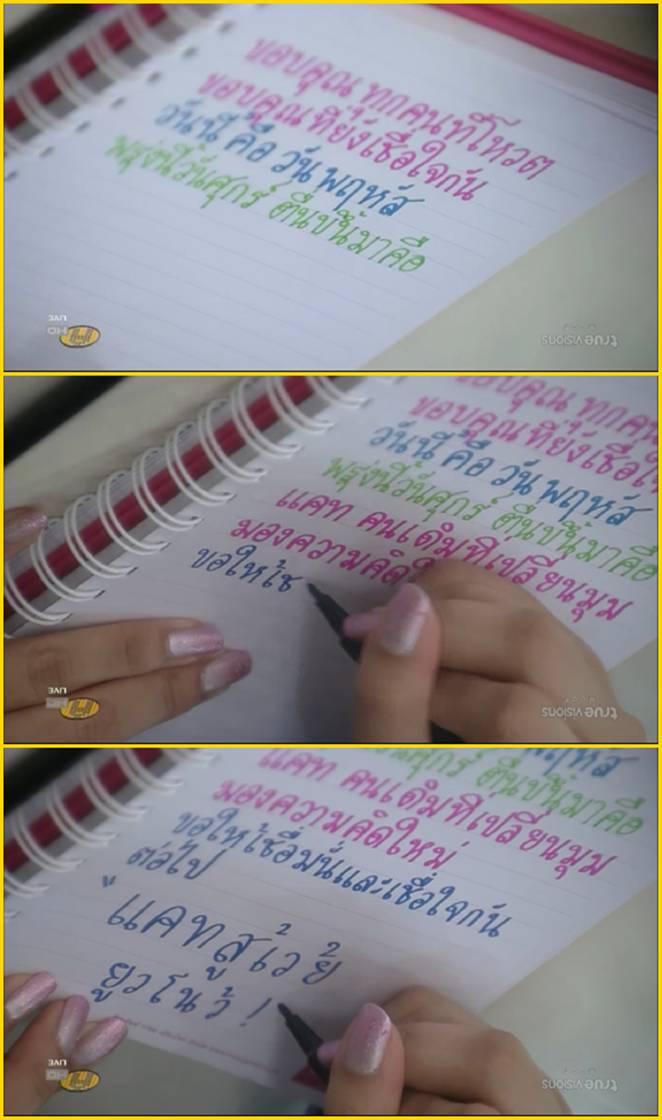 ขอบคุณ ทุกคนที่โหวต
ขอบคุณที่ยังเชื่อใจกัน
วันนี้ คือ วัน พฤหัส
พรุ่งนี้วันศุกร์ ตื่นขึ้นมาคือ
LIVE
HD
true visions
ขอบคุณ ทุกค
ขอบคุณที่ยังเชื่อใ
วันนี้ คือ วัน พฤหัส
พรุ่งนี้วันศุกร์ ตื่นขึ้นมาคือ
แคท คนเดิมที่เปลี่ยนมุม
มองความคิดใ
ขอให้เช
LIVE
HD
true visions
พฤหัส
ศุกร์ ตื่นขึ้นมาคือ
แคท คนเดิมที่เปลี่ยนมุม
มองความคิดใหม่
ขอให้เชื่อมั่นและเชื่อใจกัน
ต่อไป
"แคทสู้เว้ย้
ยูวโนว์!
LIVE
HD
true visions